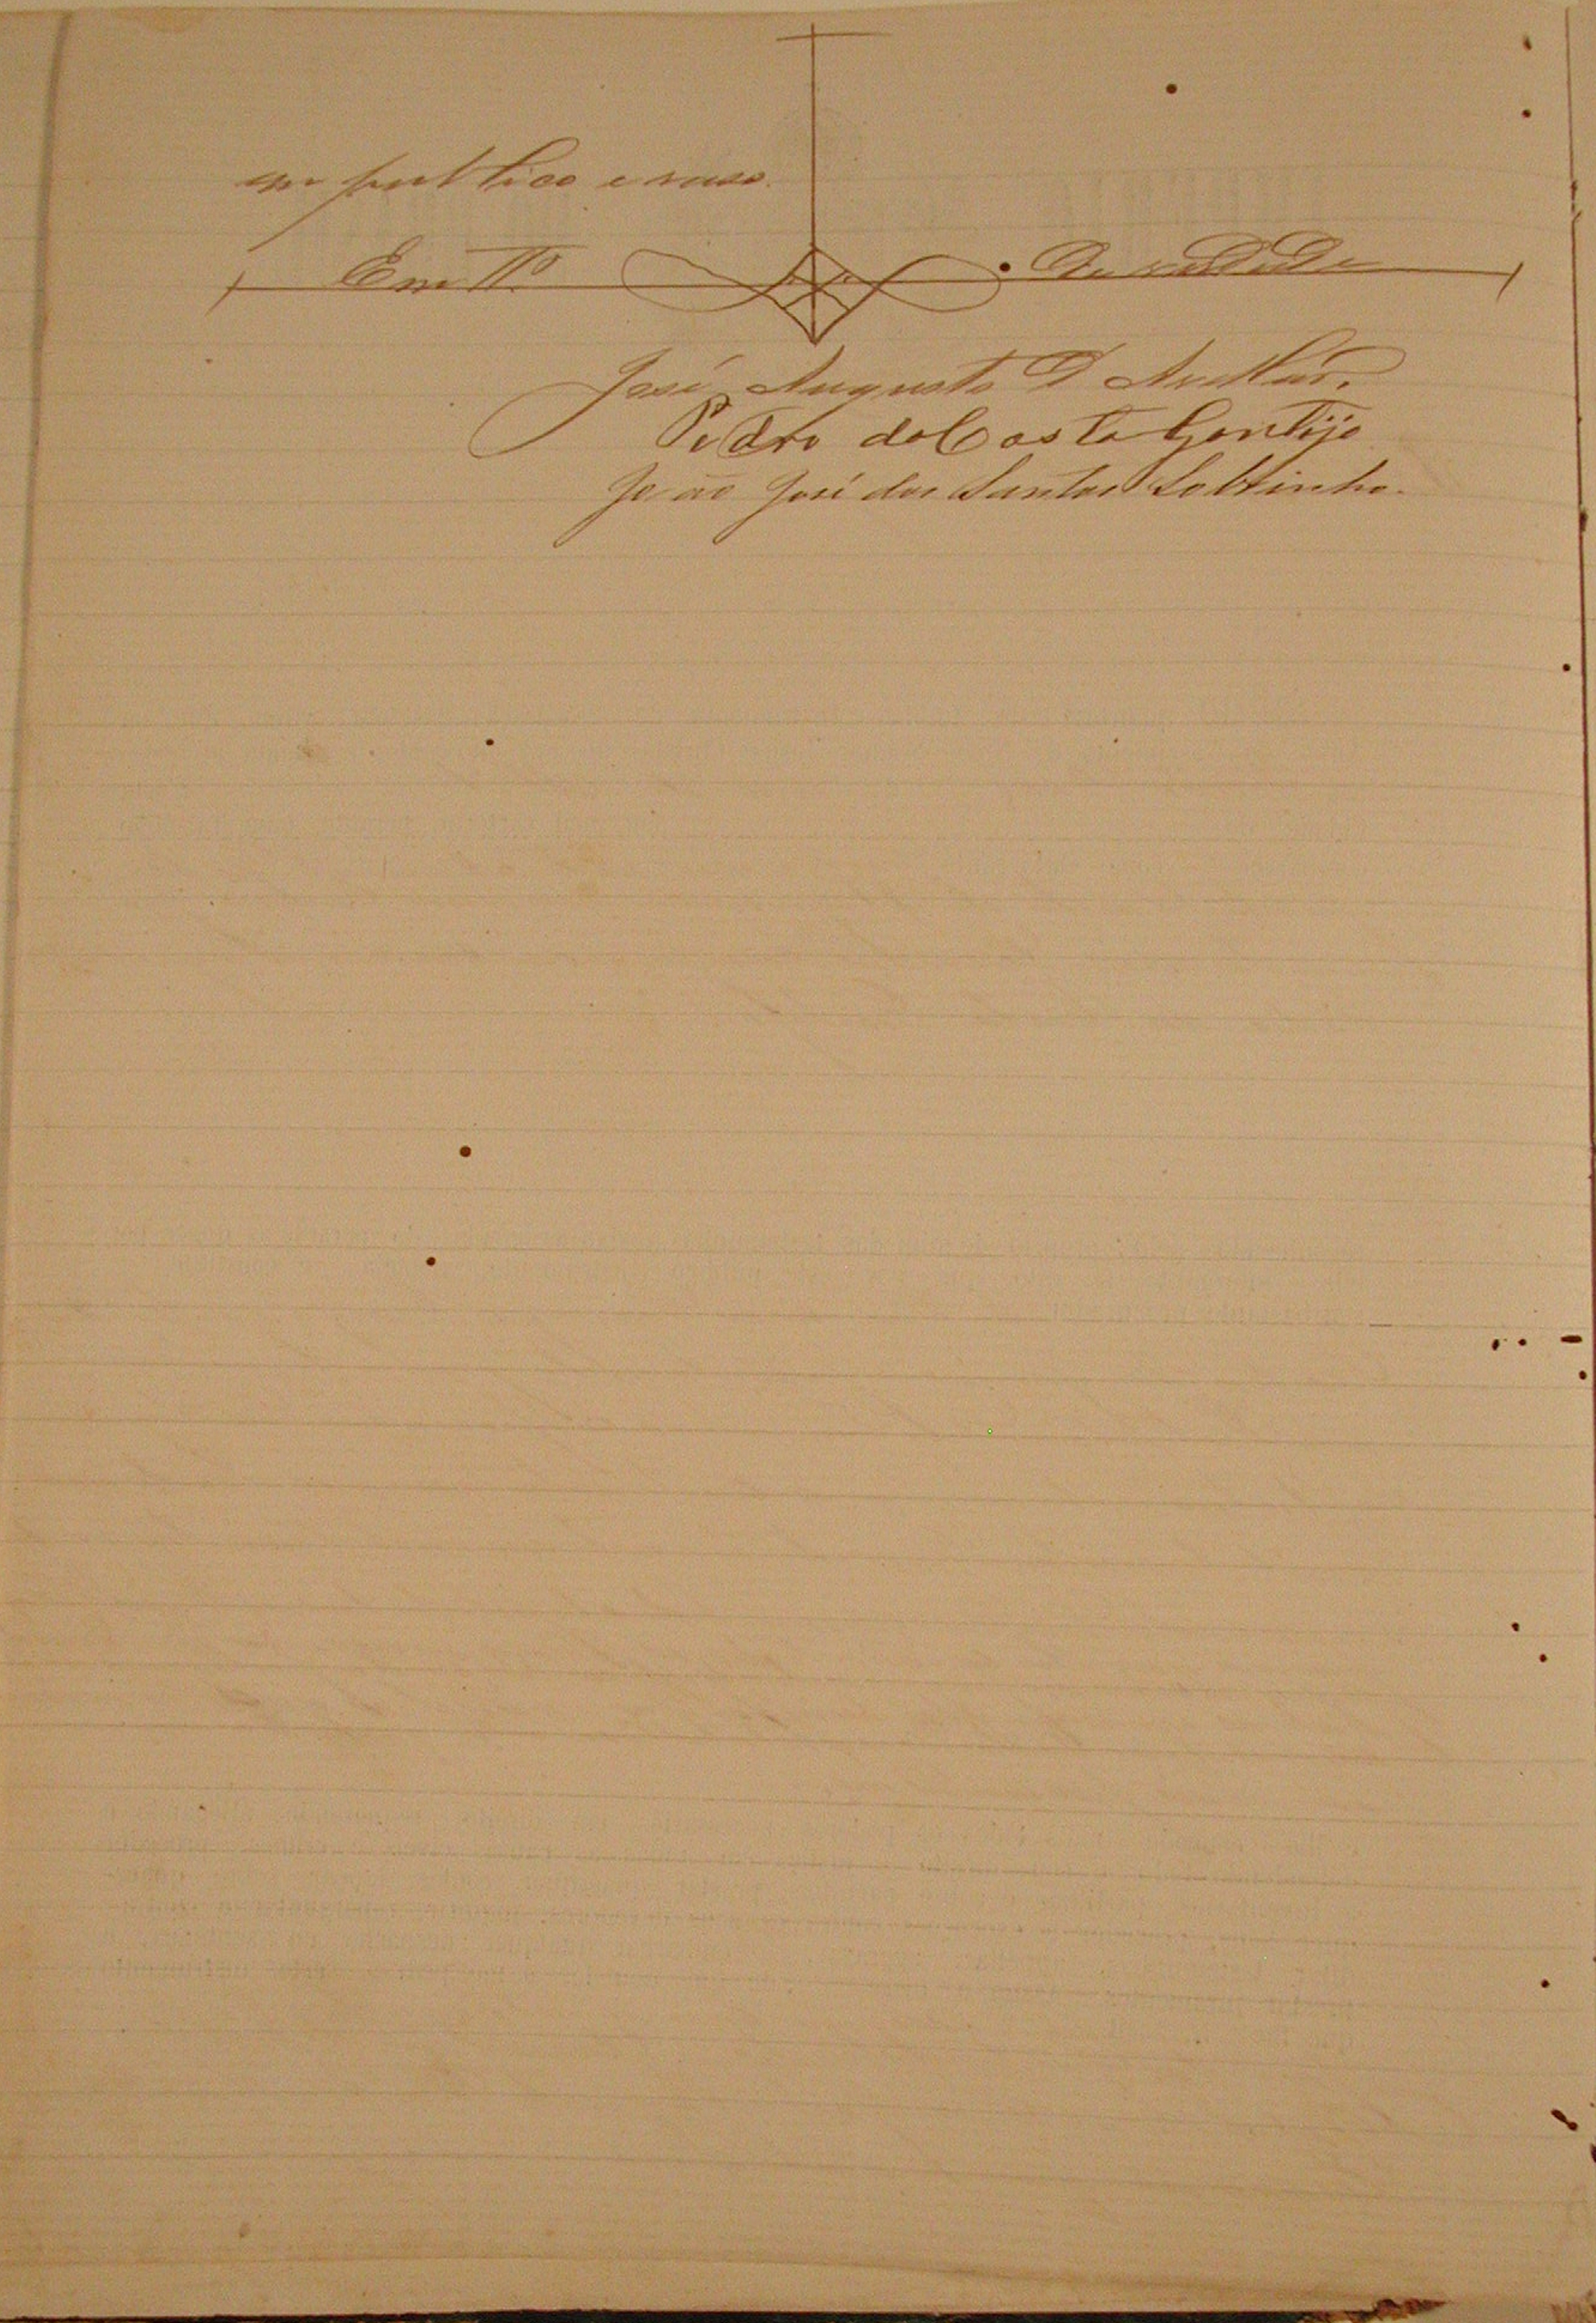 em publico e raso.
Em Tº da verdade
José Augusto d'Avellar.
Pedro da Costa Gontijo
João José dos Santos Sobrinho.